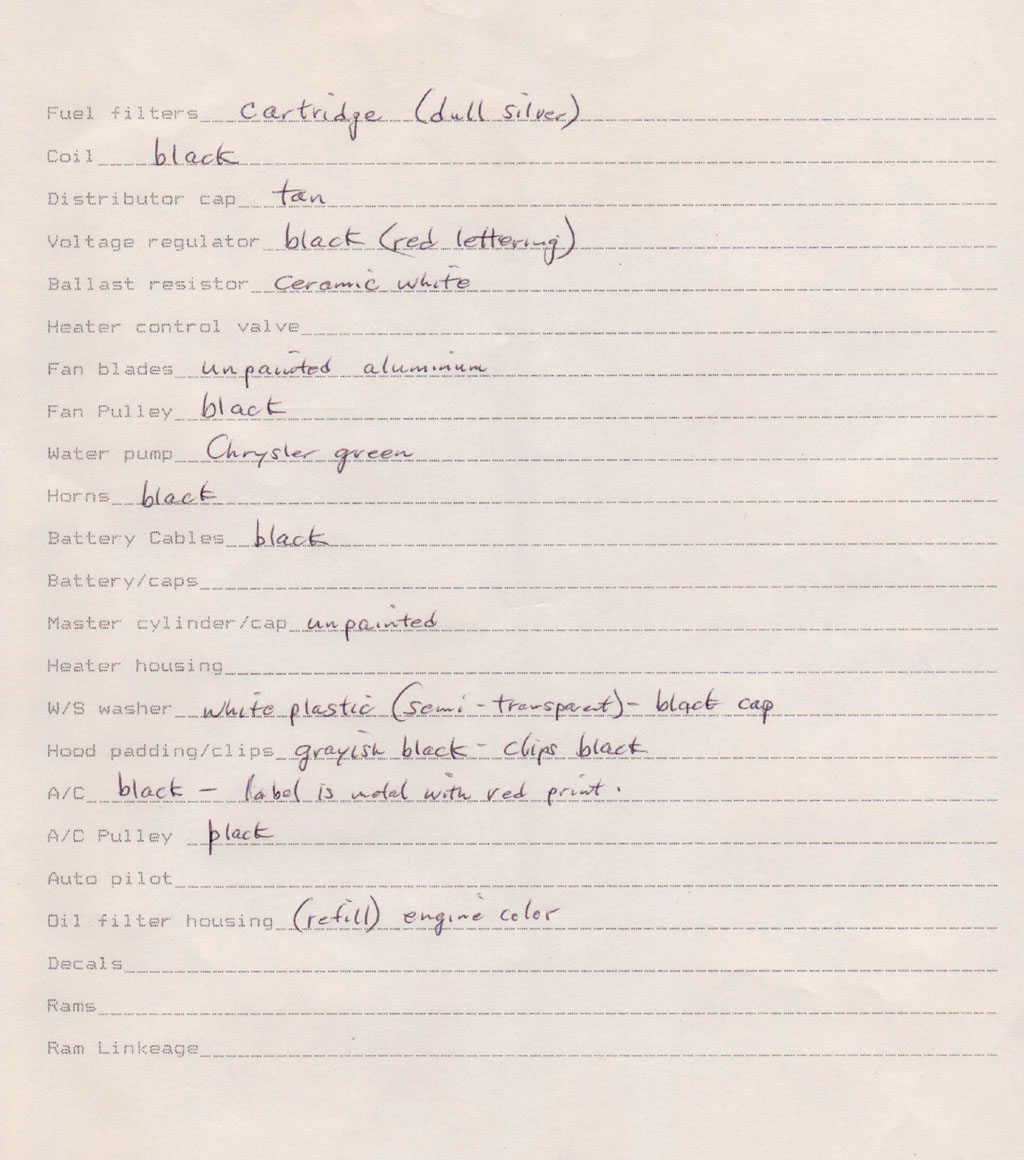 Fuel filters cartridge (dull silver)
Coil black
Distributor cap tan
Voltage regulator black (red lettering)
Ballast resistor ceramic white
Heater control valve
Fan blades unpainted aluminum
Fan Pulley black
Water pump Chrysler green
Horns black
Battery Cables black
Battery/caps
Master cylinder/cap unpainted
Heater housing
W/S washer white plastic (semi-transparent) - black cap
Hood padding/clips grayish black - clips black
A/C black - label is metal with red print.
A/C Pulley black
Auto pilot
Oil filter housing (refill) engine color
Decals
Rams
Ram Linkeage